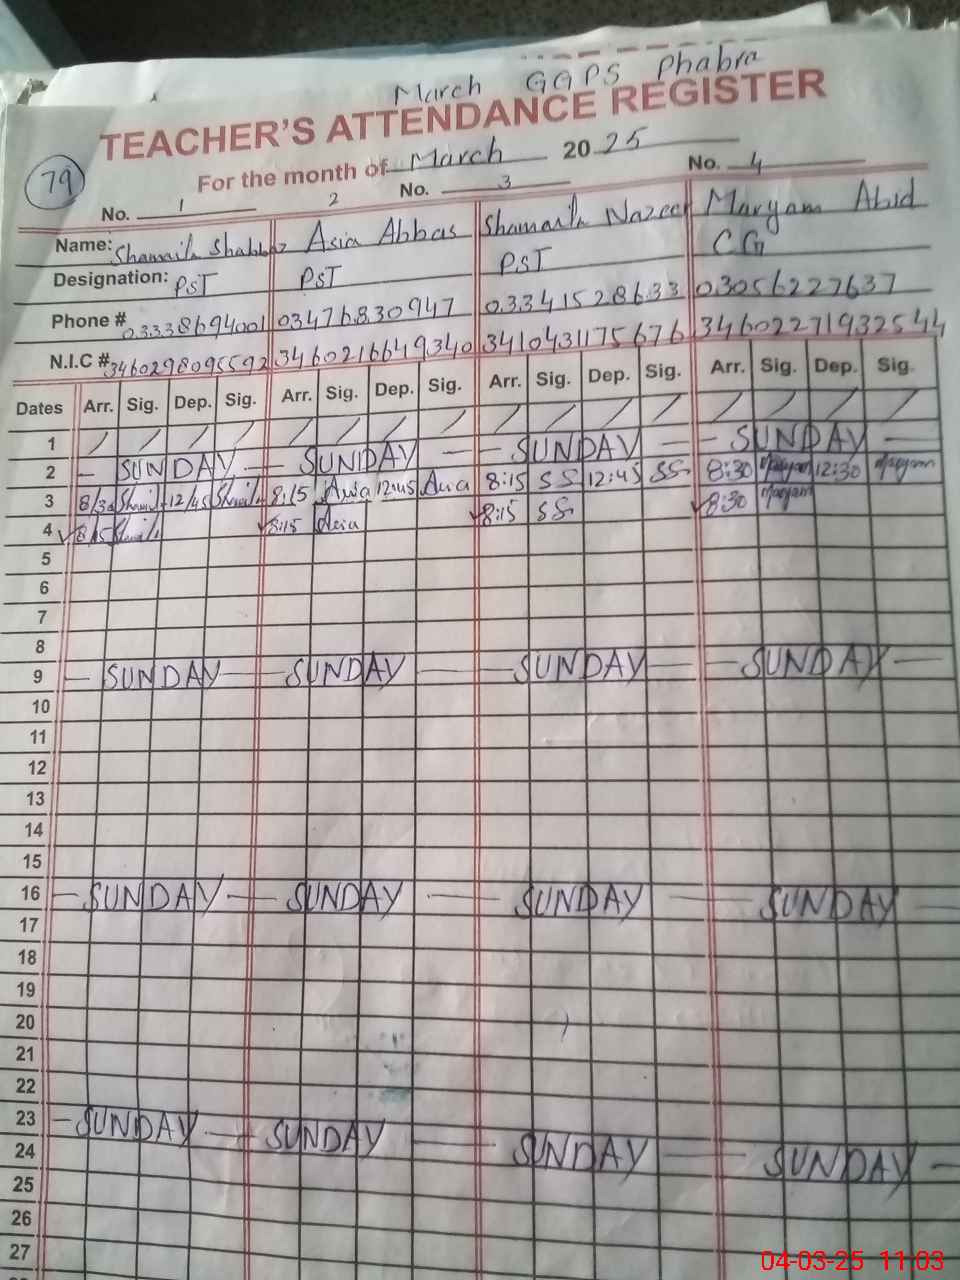 March GGPS Phabra
TEACHER'S ATTENDANCE REGISTER
For the month of March 2025
79
No. 1 2 No. 3 No. 4
Name: Shamaila Shabbaz Asia Abbas Shamaila Nazeer Maryam Abid
Designation: PST PST PST CG
Phone # 03338694001 03476830947 03341528633 03056227637
N.I.C # 3460298095592 3460216649340 3410431175676 34602271932544
Dates Arr. Sig. Dep. Sig. Arr. Sig. Dep. Sig. Arr. Sig. Dep. Sig. Arr. Sig. Dep. Sig.
1 / / / / / / / / / / / / / / / /
2 — SUNDAY — SUNDAY — SUNDAY — SUNDAY —
3 8/30 12/45 8:15 Asia 12:45 Asia 8:15 SS 12:45 SS 8:30 Maryam 12:30 Maryam
4 8/15 8:15 Asia 8:15 SS 8:30 Maryam
5
6
7
8
9 — SUNDAY — SUNDAY — SUNDAY — SUNDAY —
10
11
12
13
14
15
16 — SUNDAY — SUNDAY — SUNDAY — SUNDAY —
17
18
19
20
21
22
23 — SUNDAY — SUNDAY — SUNDAY — SUNDAY —
24
25
26
27
04-03-25 11:03